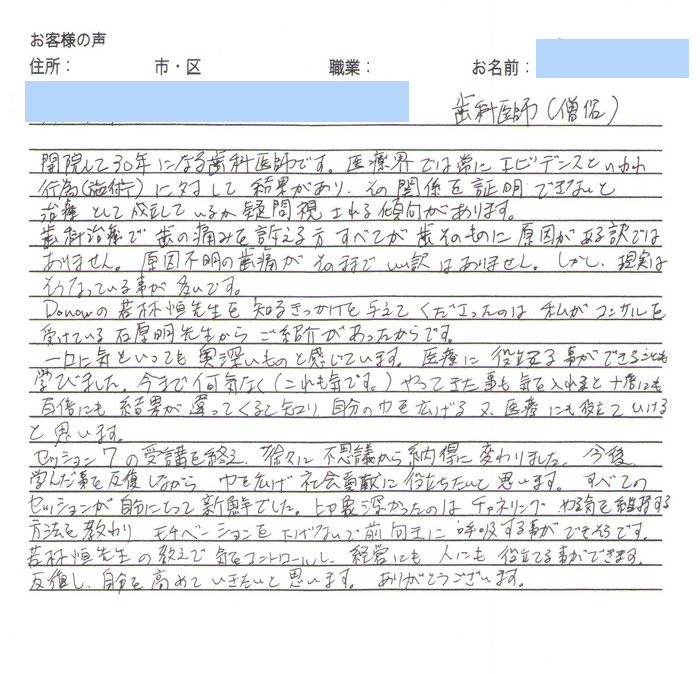 お客様の声
住所： 市・区 職業： お名前：
歯科医師（僧侶）
開院して30年になる歯科医師です。医療界では常にエビデンスといわれ
行為（施術）に対して結果があり、その関係を証明できないと
治療として成立しているか疑問視される傾向があります。
歯科治療で歯の痛みを訴える方すべてが歯そのものに原因がある訳では
ありません。原因不明の歯痛がそのままでいい訳はありません。しかし、現実は
そうなっている事が多いです。
の若林恒先生を知るきっかけを与えてくださったのは私がコンサルを
受けている石原明先生からご紹介があったからです。
一口に気といっても奥深いものと感じています。医療に役立てる事ができることも
学びました。今まで何気なく（これも気です。）やってきた事も気を入れると十倍にも
百倍にも結果が違ってくると知り自分の力を広げる又、医療にも役立てていける
と思います。
セッション7の受講を終え、徐々に不思議から納得に変わりました。今後、
学んだ事を反復しながら力を広げ社会貢献に役立ちたいと思います。すべての
セッションが自分にとって新鮮でした。印象深かったのはチャネリング やる気を維持する
方法を教わりモチベーションを下げないで前向きに呼吸する事ができそうです。
若林恒先生の教えで気をコントロールし、経営にも人にも役立てる事ができます。
反復し、自分を高めていきたいと思います。ありがとうございます。